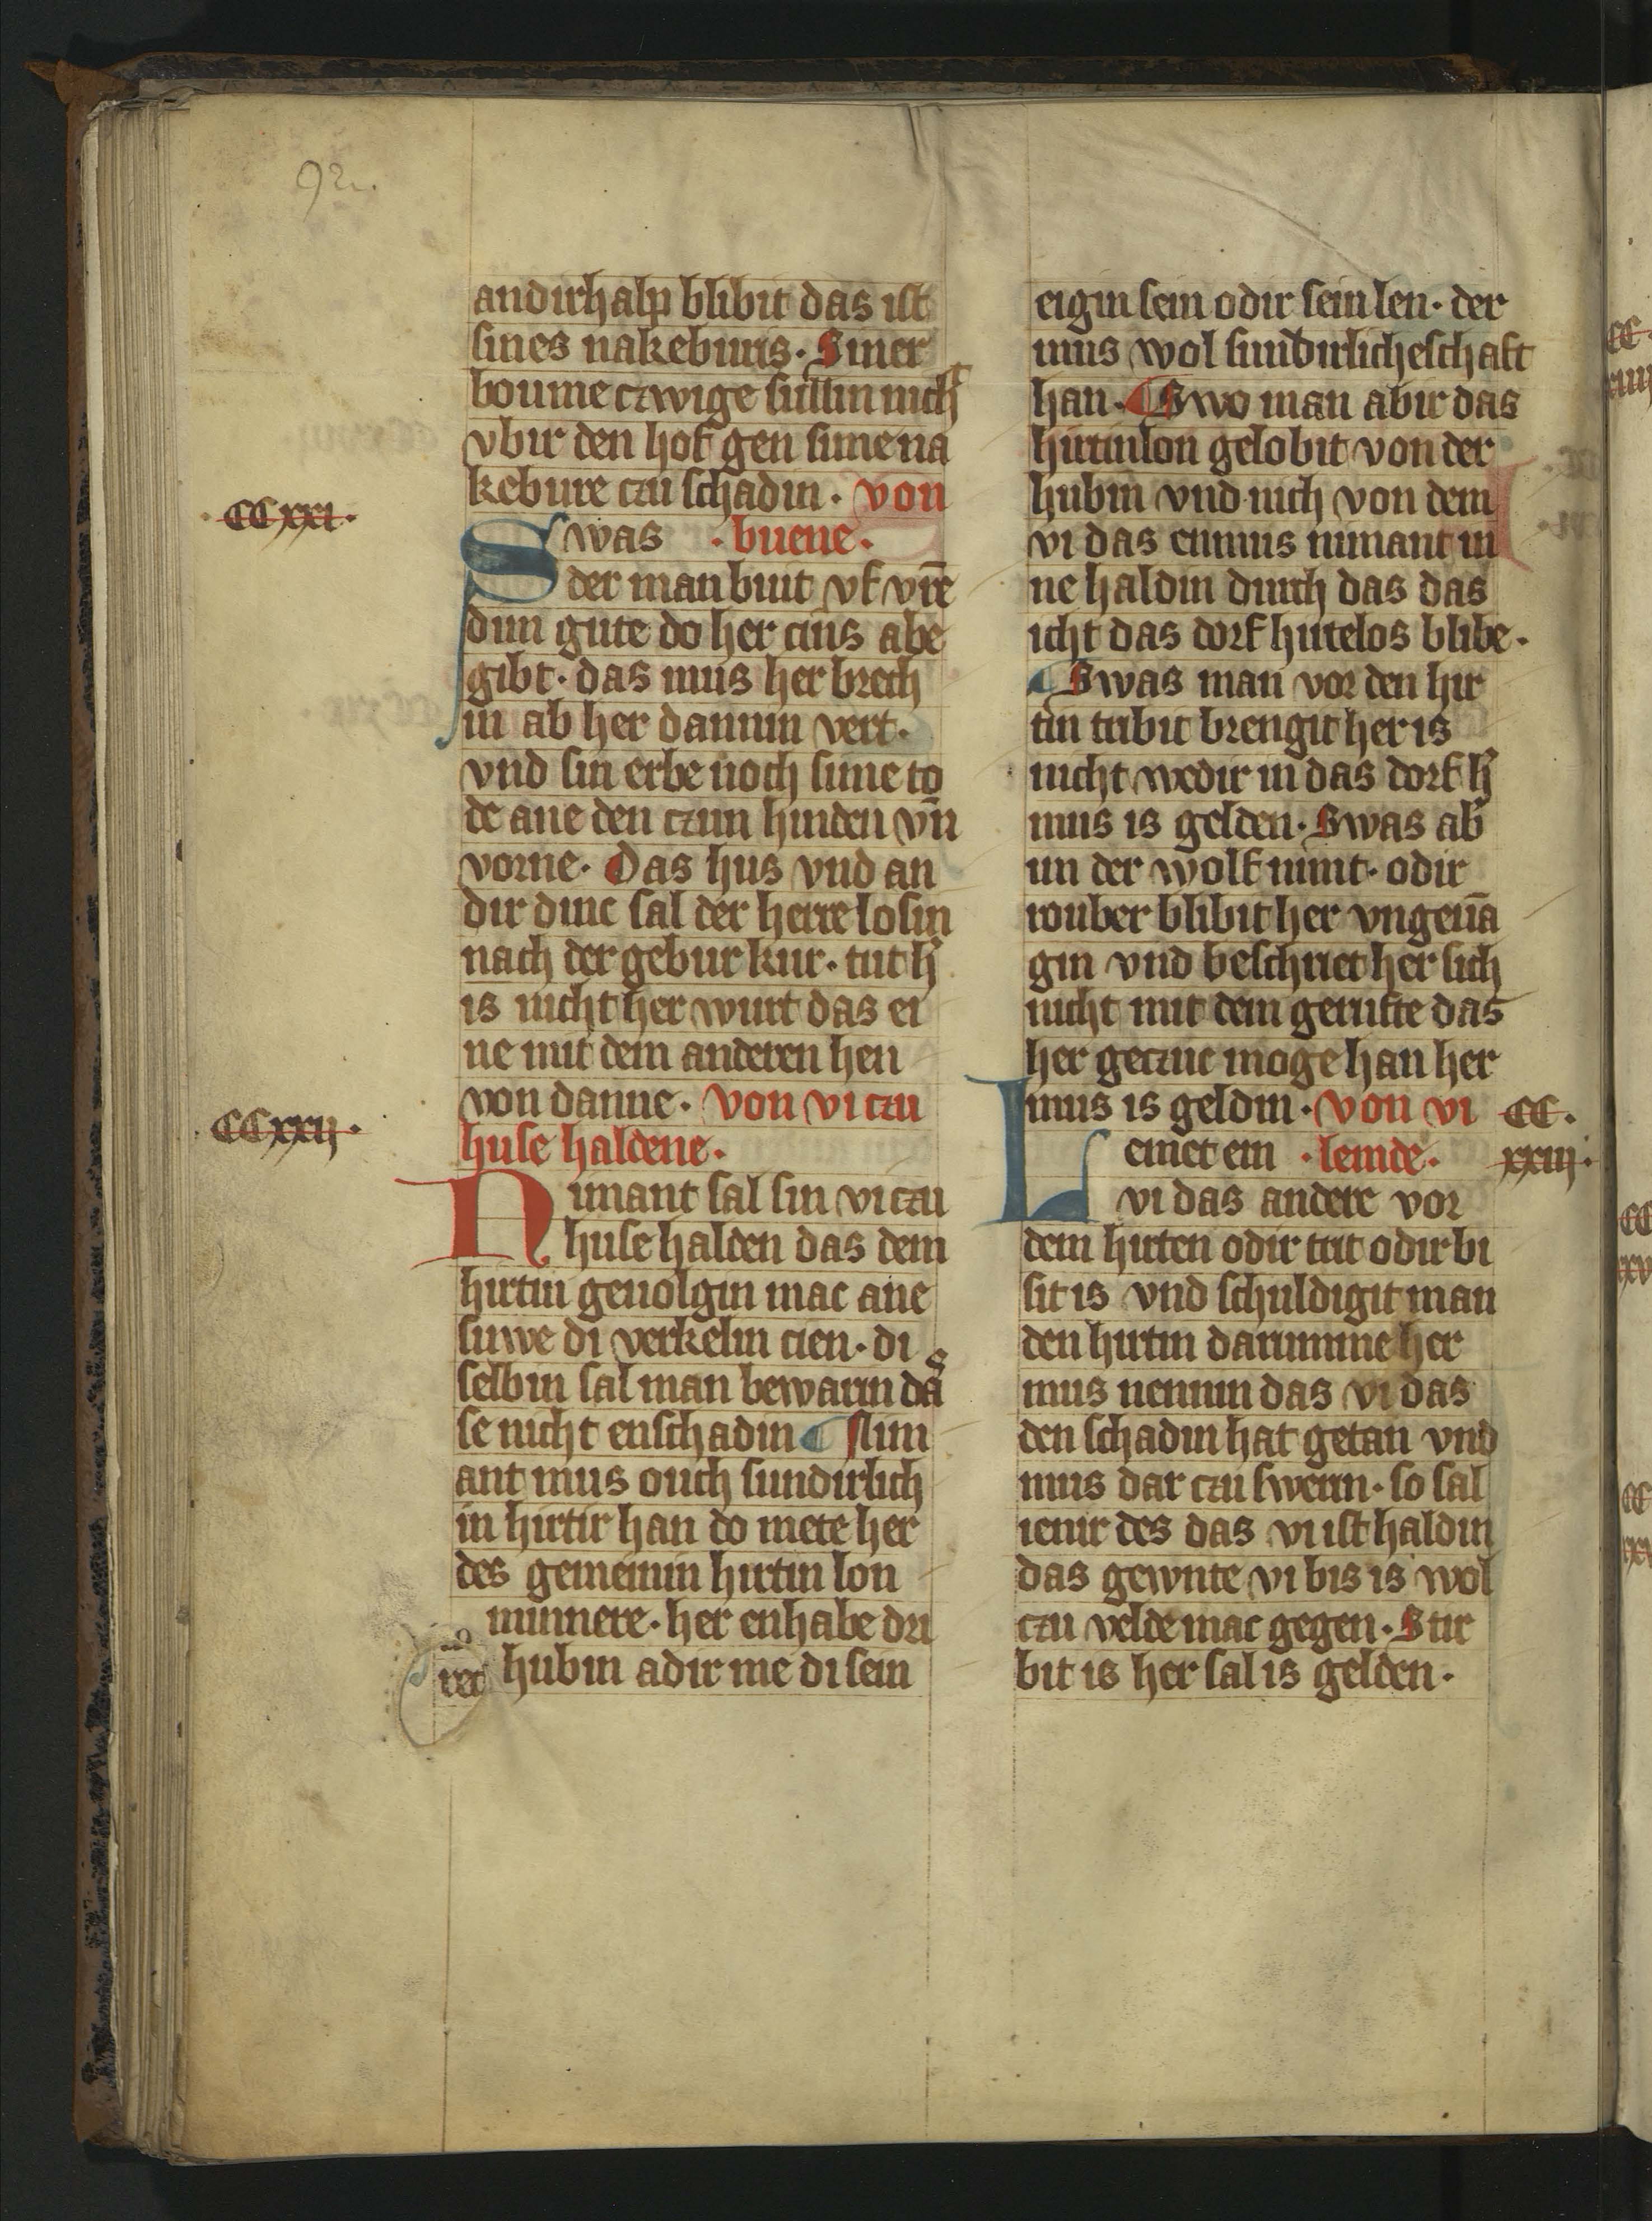 92.
andirhalp blibit das ist
sines nakeburis. Siner
boume czwige sullin nicht
vbir den hof gen sime na
kebure czu schadin. von
CCxxi.
Swas .buene.
der man buit vf vre͞
dim gute do her cins abe
gibt. das mus her brech
in ab her dannin vert.
vnd sin erbe noch sime to
de ane den czun hinden vn̄
vorne. Das hus vnd an
dir dinc sal der herre losin
nach der gebur kur. tut h̾
is nicht her wurt das ei
ne mit dem anderen hen
von danne. von vi czu
CCxxij.
huse haldene.
Nimant sal sin vi czu
huse halden das dem
hirtin geuolgin mac ane
suwe di verkelin cien. di
selbin sal man bewarin das
se nicht enschadin ¶ Nim
ant mus ouch sundirlich
in hirtir han do mete her
des gemeinin hirtin lon
minnere. her enhabe dri
hubin adir me di sein
eigin sein odir sein len. der
mus wol sundirlicheschaft
han. ¶ Swo man abir das
hirtinlon gelobit von der
hubin vnd nich von dem
vi das enmus nimant in
ne haldin durch das das
icht das dorf hirtelos blibe.
¶ Swas man vor den hir
tin tribit brengit her is
nicht wedir in das dorf h̾
mus is gelden. Swas ab̾
im der wolf nimt. odir
rouber blibit her vngeua̅
gin vnd beschriet her sich
nicht mit dem gerufte das
her geczuc moge han her
mus is geldin. von vi
CC.
xxiij.
Lemet ein .lemde.
vi das andere vor
dem hirten odir trit odir bi
sit is vnd schuldigit man
den hirtin darumme her
mus nennin das vi das
den schadin hat getan vnd
mus dar czu swerin. so sal
ienir des das vi ist haldin
das gewnte vi bis is wol
czu velde mac gegen. Stir
bit is her sal is gelden.